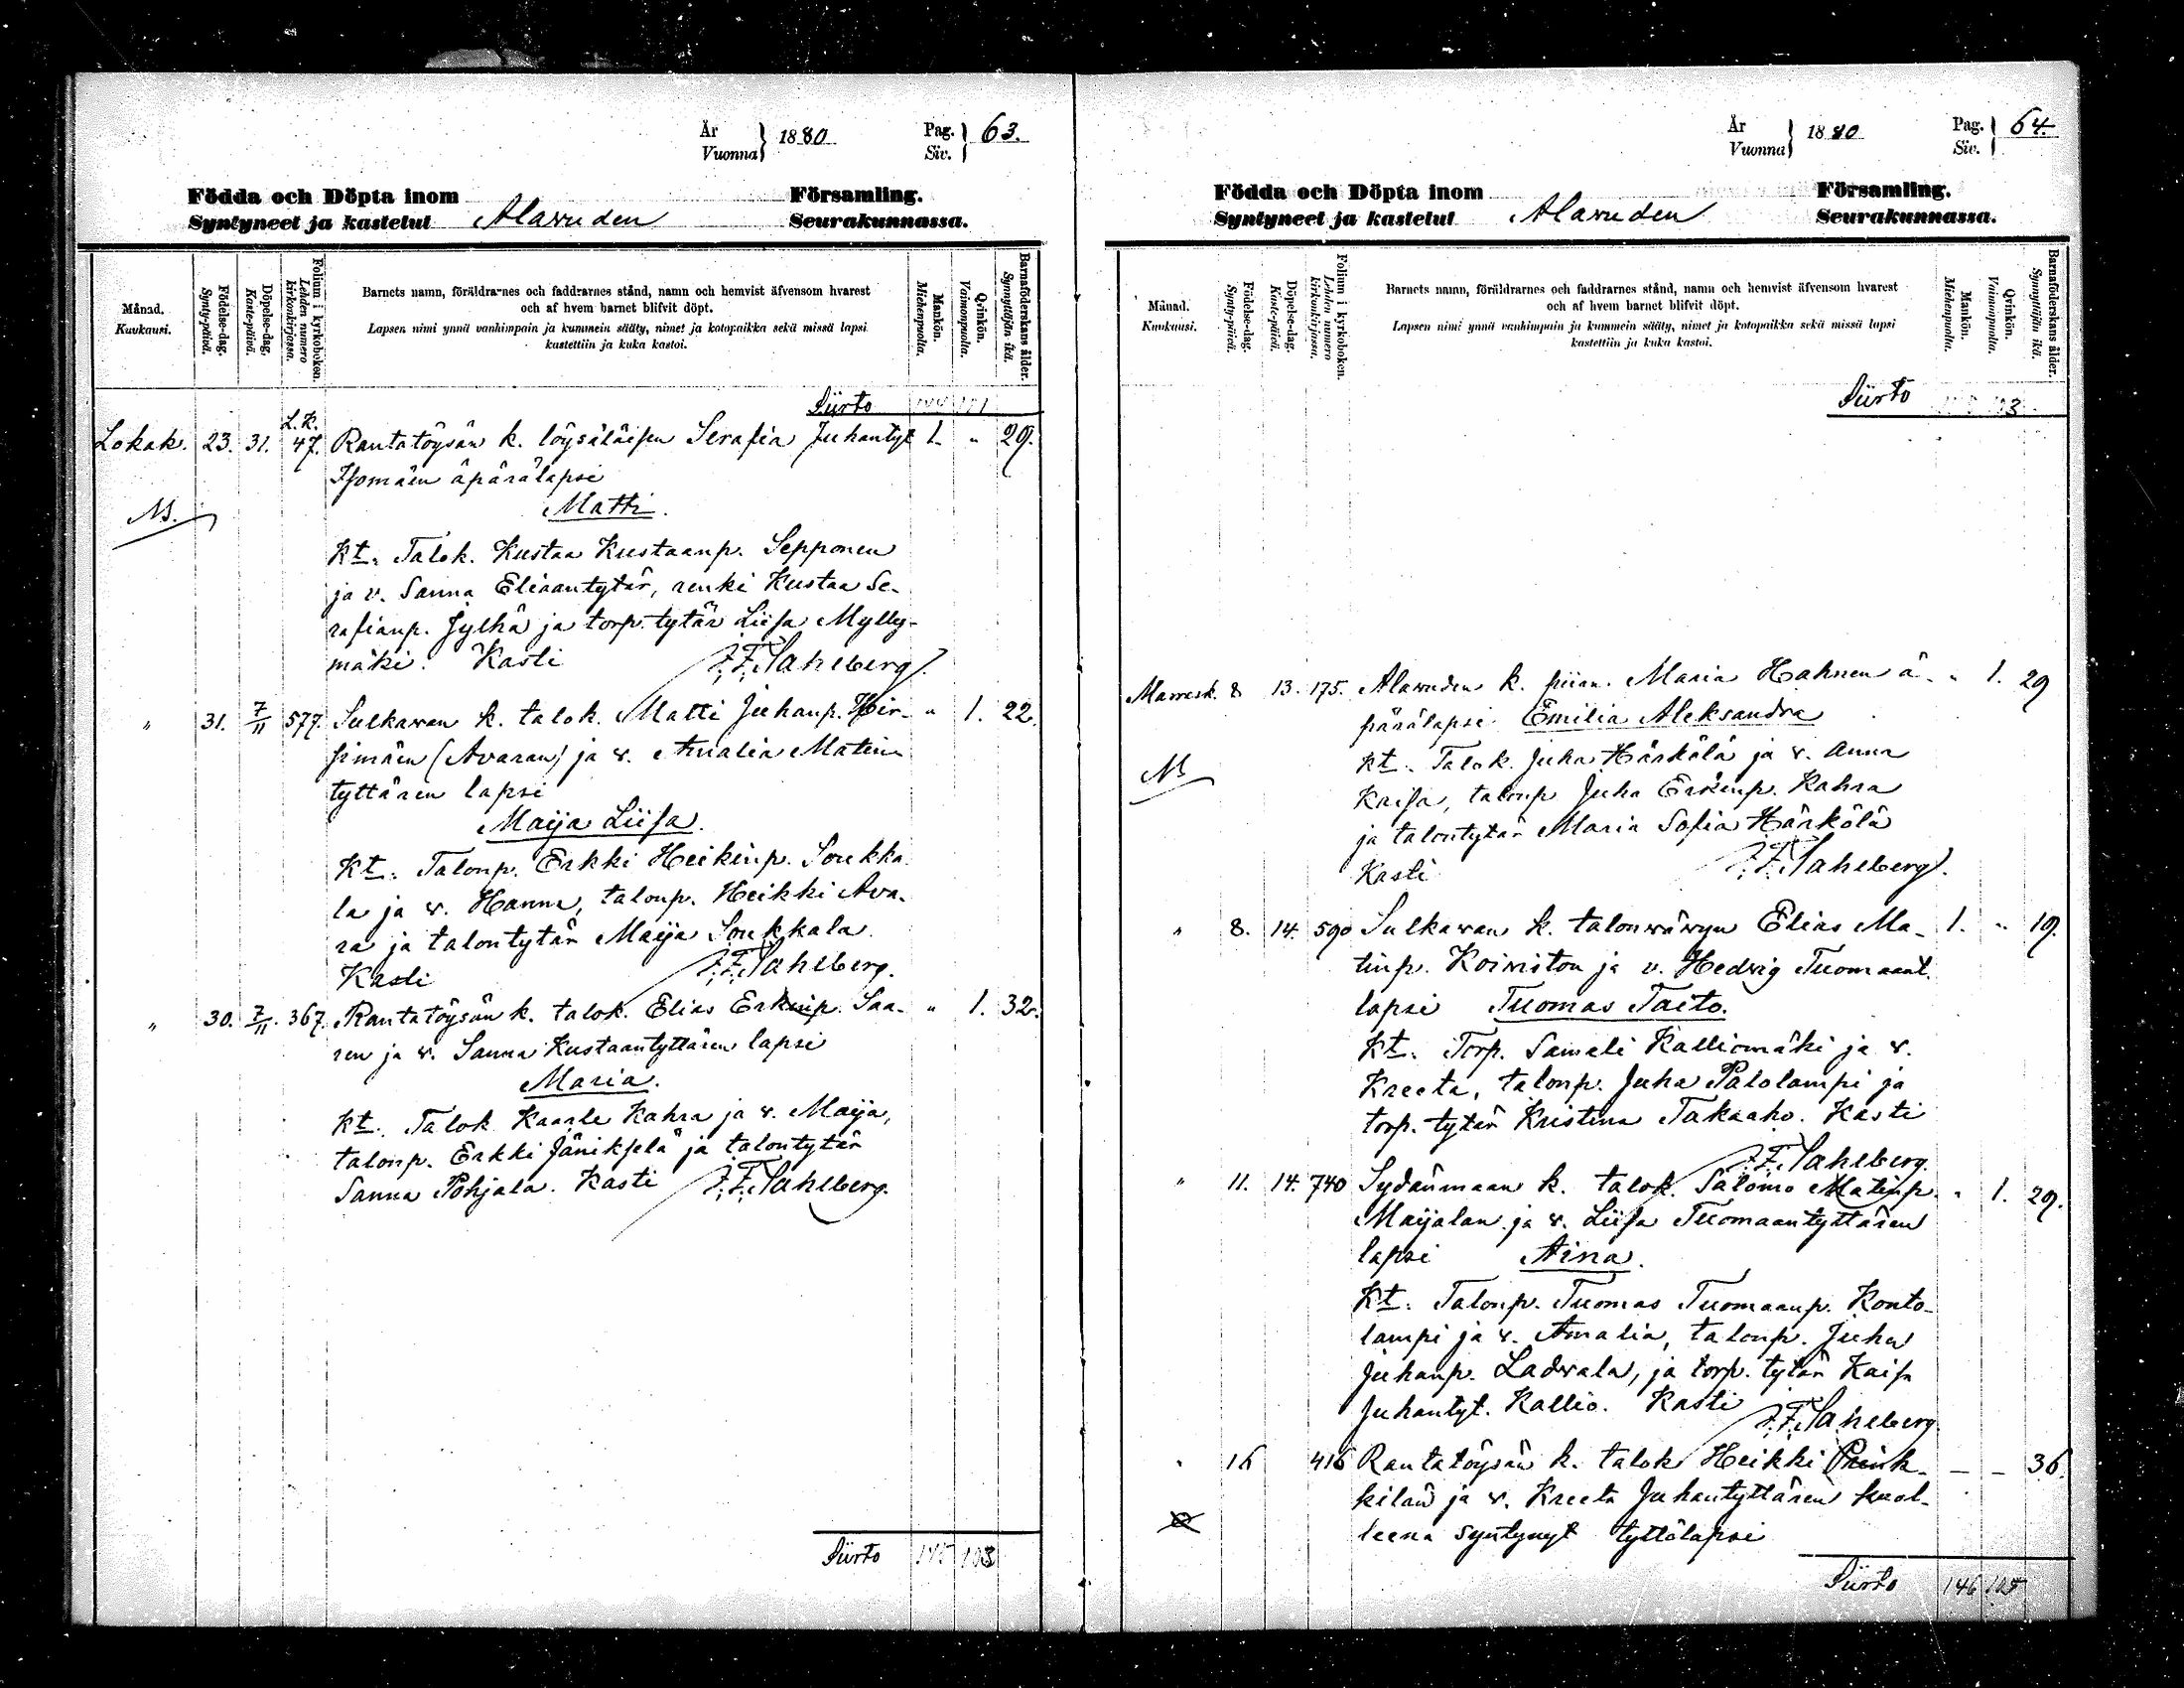 År
Vuonna } 1880
Pag.
Siv. } 63.
Födda och Döpta inom Församling.
Syntyneet ja kastetut Alavuden Seurakunnassa.
Månad.
Kuukausi.
Födelse-dag.
Synty-päivä.
Döpelse-dag.
Kaste-päivä.
Folium i kyrkoboken.
Lehden numero kirkonkirjassa.
Barnets namn, föräldrarnes och faddrarnes stånd, namn och hemvist äfvensom hvarest
och af hvem barnet blifvit döpt.
Lapsen nimi ynnä vanhimpain ja kummein sääty, nimet ja kotopaikka sekä missä lapsi
kastettiin ja kuka kastoi.
Mankön.
Miehenpuolta.
Qvinkön.
Vaimonpuolta.
Barnaföderskans ålder.
Synnyttäjän ikä.
Siirto
L.K.
Lokak. 23. 31. 47. Rantatöysän k. löysäläisen Serafia Juhantyt 1. " 29.
Isomäen äpärälapsi
Matti.
Kt. Talok. Kustaa Kustaanp. Sepponen
ja v. Sanna Eliaantytär, renki Kustaa Se-
rafianp. Jylhä ja torp. tytär Liisa Mylly-
mäki. Kasti J.F. Sahlberg.
" 31. 7/11 577. Sulkavan k. talok. Matti Juhanp. Hir- " 1. 22.
simäen (Avaran) ja v. Amalia Matin
tyttären lapsi
Maija Liisa.
Kt. Talonp. Erkki Heikinp. Soukka-
la ja v. Hanna, talonp. Heikki Ava-
ra ja talontytär Maija Soukkala.
Kasti J.F. Sahlberg.
" 30. 7/11. 367. Rantatöysän k. talok. Elias Erkinp. Saa- " 1. 32.
ren ja v. Sanna Kustaantyttären lapsi
Maria.
Kt. Talok Kaarle Kahra ja v. Maija,
talonp. Erkki Jänikselä ja talontytär
Sanna Pohjala. Kasti J.F. Sahlberg.
Siirto 145 103
År
Vuonna } 1880
Pag.
Siv. } 64.
Födda och Döpta inom Församling.
Syntyneet ja kastetut Alavuden Seurakunnassa.
Månad.
Kuukausi.
Födelse-dag.
Synty-päivä.
Döpelse-dag.
Kaste-päivä.
Folium i kyrkoboken.
Lehden numero kirkonkirjassa.
Barnets namn, föräldrarnes och faddrarnes stånd, namn och hemvist äfvensom hvarest
och af hvem barnet blifvit döpt.
Lapsen nimi ynnä vanhimpain ja kummein sääty, nimet ja kotopaikka sekä missä lapsi
kastettiin ja kuka kastoi.
Mankön.
Miehenpuolta.
Qvinkön.
Vaimonpuolta.
Barnaföderskans ålder.
Synnyttäjän ikä.
Siirto
Marrask. 8 13. 175. Alavuden k. piian Maria Hahnen ä- " 1. 29
pärälapsi Emilia Aleksandra
Kt. Talok. Juha Härkölä ja v. Anna
Kaisa, talonp Juha Erkinp. Kahra
ja talontytär Maria Sofia Härkölä
Kasti J.F. Sahlberg.
" 8. 14. 590 Sulkavan k. talonvävyn Elias Ma- 1. " 19.
tinp. Koiviston ja v. Hedvig Tuomaant.
lapsi Tuomas Taito.
Kt. Torp. Sameli Kalliomäki ja v.
Kreeta, talonp. Juha Palolampi ja
torp. tytär Kristina Takaaho. Kasti
J.F. Sahlberg.
" 11. 14. 740 Sydänmaan k. talok. Salomo Matinp. " 1. 29.
Maijalan ja v. Liisa Tuomaantyttären
lapsi Aina.
Kt. Talonp. Tuomas Tuomaanp. Konto-
lampi ja v. Amalia, talonp. Juha
Juhanp. Ladvala, ja torp. tytär Kaisa
Juhantyt. Kallio. Kasti
J.F. Sahlberg.
" 16 416 Rantatöysän k. talok Heikki Prink- - - 36.
kilän ja v. Kreeta Juhantyttären kuol-
leena syntynyt tyttölapsi
Siirto 146 105